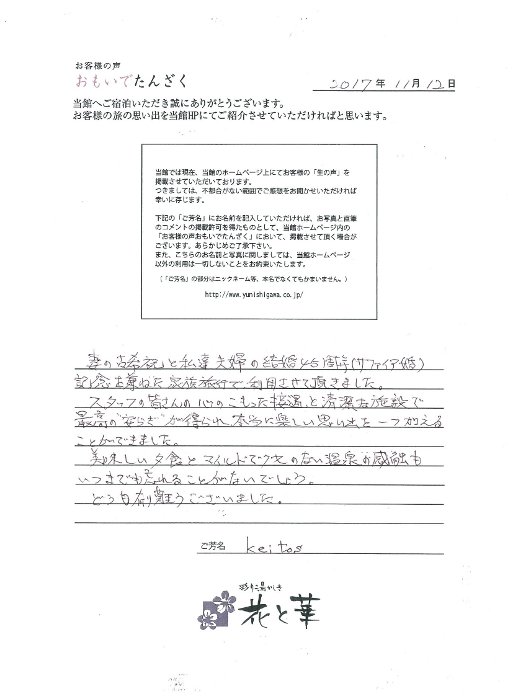 お客様の声
おもいでたんざく
2017年 11月 12日
当館へご宿泊いただき誠にありがとうございます。
お客様の旅の思い出を当館HPにてご紹介させていただければと思います。
当館では現在、当館のホームページ上にてお客様の「生の声」を
掲載させていただいております。
つきましては、不都合がない範囲でご感想をお聞かせいただければ
幸いに存じます。
下記の「ご芳名」にお名前を記入していただければ、お写真と直筆
のコメントの掲載許可を得たものとして、当館ホームページ内の
「お客様の声おもいでたんざく」において、掲載させて頂く場合が
ございます。あらかじめご了承下さい。
また、こちらのお名前と写真に関しましては、当館ホームページ
以外の利用は一切しないことをお約束いたします。
(「ご芳名」の部分はニックネーム等、本名でなくてもかまいません。)
http://www.yunishigawa.co.jp/
妻の「古希祝」と私達夫婦の結婚45周年(サファイア婚)
記念を兼ねた家族旅行で利用させて頂きました。
スタッフの皆さんの心のこもった接遇と清潔な施設で
最高の"安らぎ"が得られ、本当に楽しい思い出を一つ加える
ことができました。
美味しい夕食とマイルドでクセのない温泉の感触も
いつまでも忘れることがないでしょう。
どうも有難うございました。
ご芳名 keitos
花と華